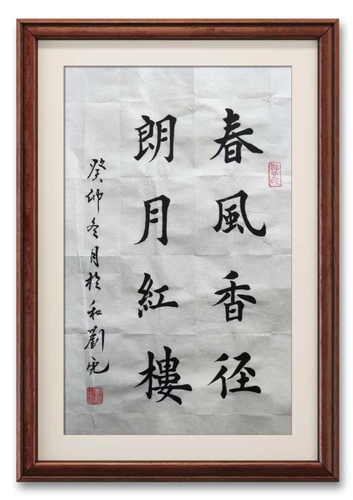 春風香径
朗月紅樓
癸卯冬月於和劉